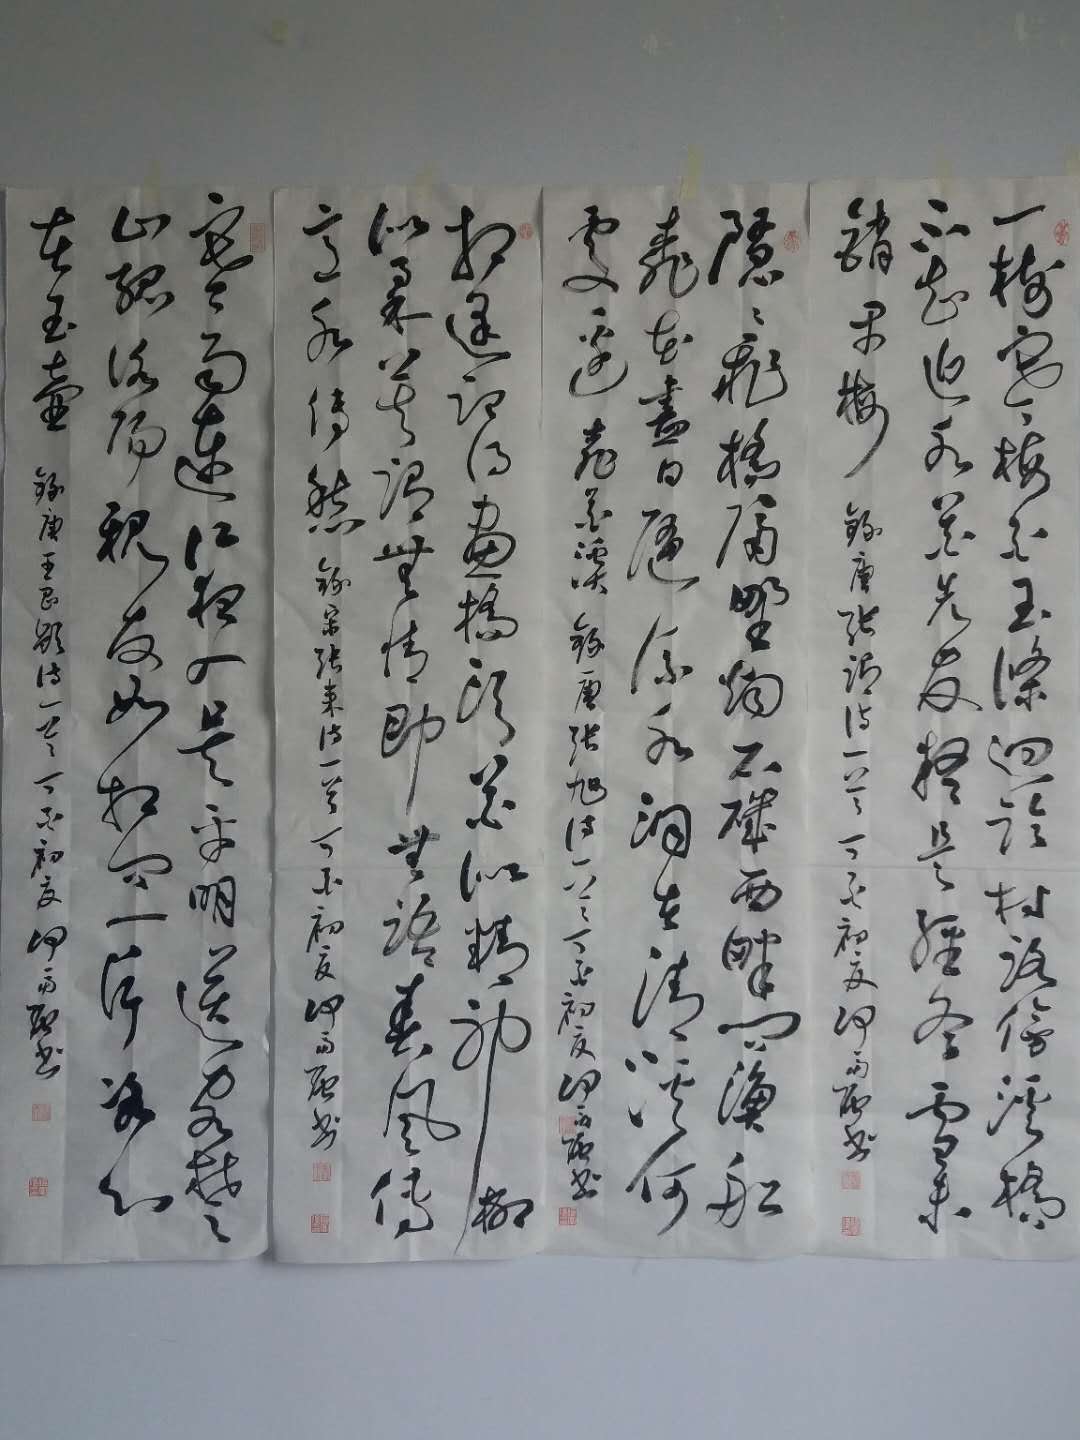 一樹寒梅白玉條迥臨村路傍溪橋
不知近水花先發疑是經冬雪未
銷 早梅 錄唐張謂詩一首 丁酉初夏 書
隱〻飛橋隔野煙石磯西畔問漁船
桃花盡日隨流水洞在清溪何
處邊 桃花溪 錄唐張旭詩一首 丁酉初夏 書
相逢記得畫橋頭花似精神柳
似柔莫謂無情即無語春風傳
意水傳愁 錄宋張耒詩一首 丁酉初夏 書
寒雨連江夜入吳平明送客楚
山孤洛陽親友如相問一片冰心
在玉壺 錄唐王昌齡詩一首 丁酉初夏 書